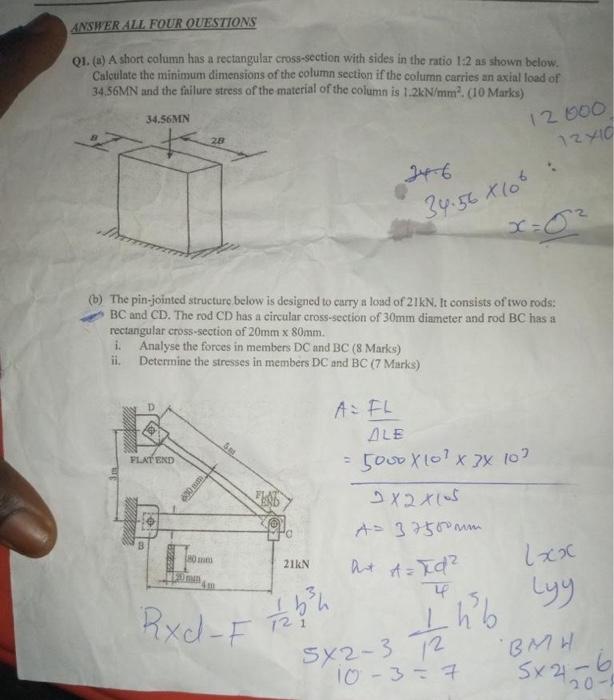 ANSWER ALL FOUR QUESTIONS
Q1. (a) A short column has a rectangular cross-section with sides in the ratio 1:2 as shown below.
Calculate the minimum dimensions of the column section if the column carries an axial load of
34.56MN and the failure stress of the material of the column is 1.2kN/mm². (10 Marks)
34.56MN
B
2B
12 000
12×10
34.56 × 10⁶
x = σ²
(b) The pin-jointed structure below is designed to carry a load of 21kN. It consists of two rods:
BC and CD. The rod CD has a circular cross-section of 30mm diameter and rod BC has a
rectangular cross-section of 20mm x 80mm.
i. Analyse the forces in members DC and BC (8 Marks)
ii. Determine the stresses in members DC and BC (7 Marks)
D
5m
FLAT END
3m
ø30 mm
FLAT
END
B
C
80 mm
20 mm
4m
21kN
A = FL
ΔLE
= 5000 × 10³ × 3 × 10³
2 × 2 × 10⁵
A = 37500mm
But A = πd²
4
Ixx
Iyy
Rxd-F
1/12 b³h
1
1/12 h³b
5×2-3
10-3=7
BMH
5×4-6
20-